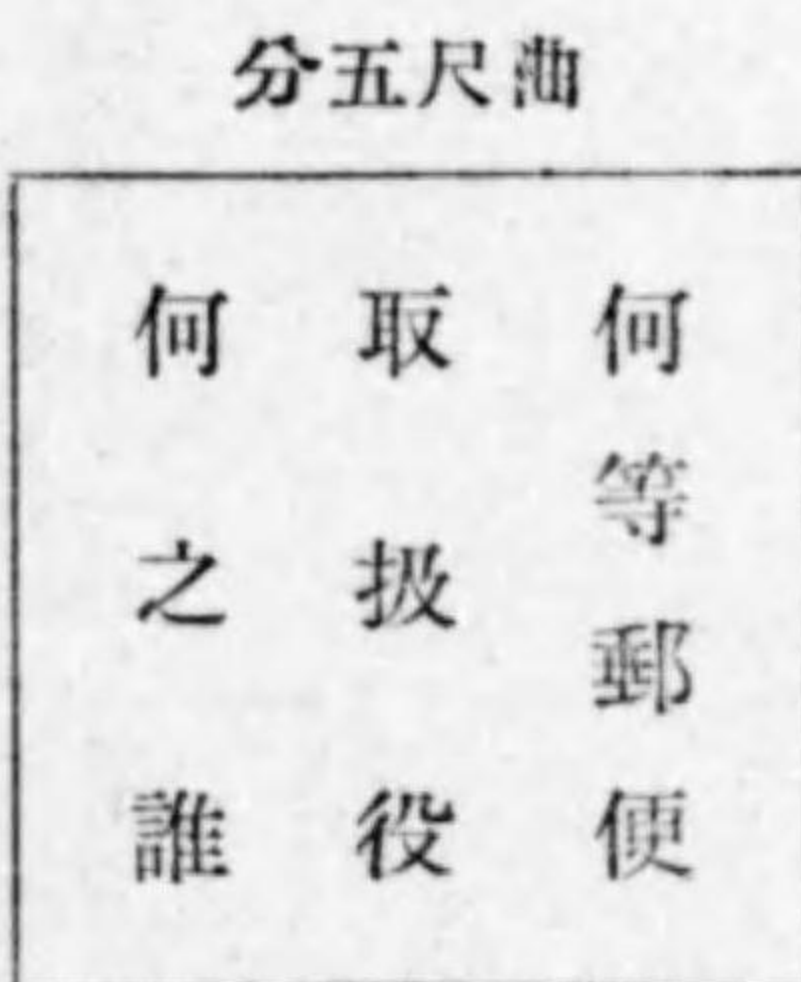 曲尺五分
何等郵便
取扱役
何之誰